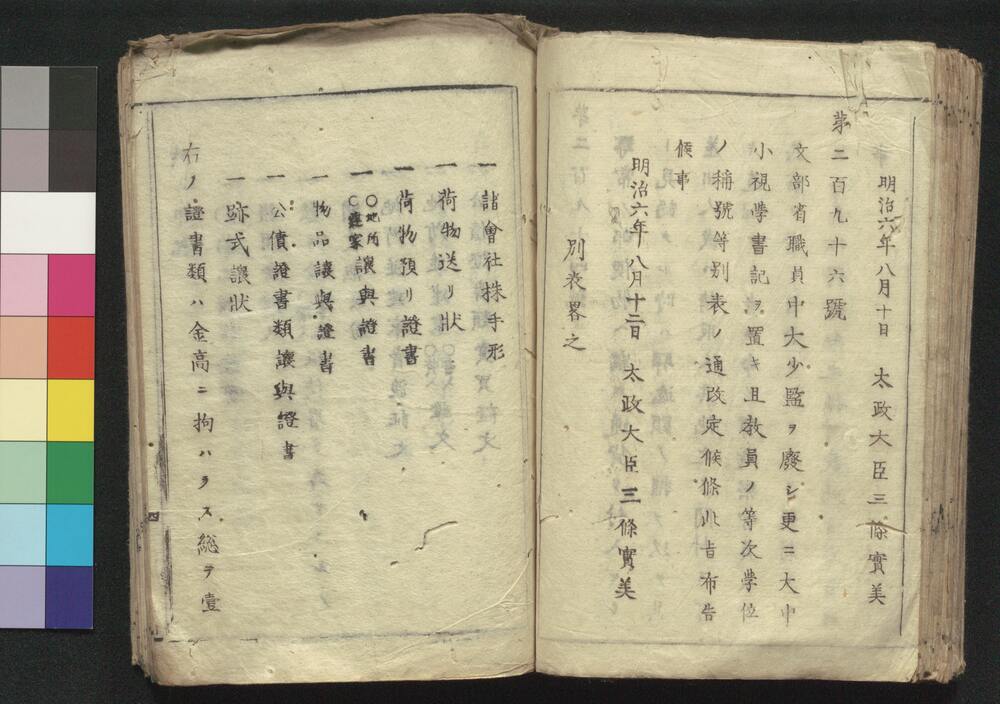 明治六年八月十日　太政大臣三條實美
第二百九十六號
文部省職員中大少監ヲ廢シ更ニ大中
小視學書記ヲ置キ且教員ノ等次學位
ノ稱號等別表ノ通改定候條此旨布告
候事
明治六年八月十二日　太政大臣三條實美
別表畧之
一諸會社株手形
一荷物送リ状
一荷物預リ證書
一〇地所〇建家讓與證書
一物品讓與證書
一公債證書類讓與證書
一跡式讓状
右ノ證書類ハ金高ニ拘ハラス總テ壹